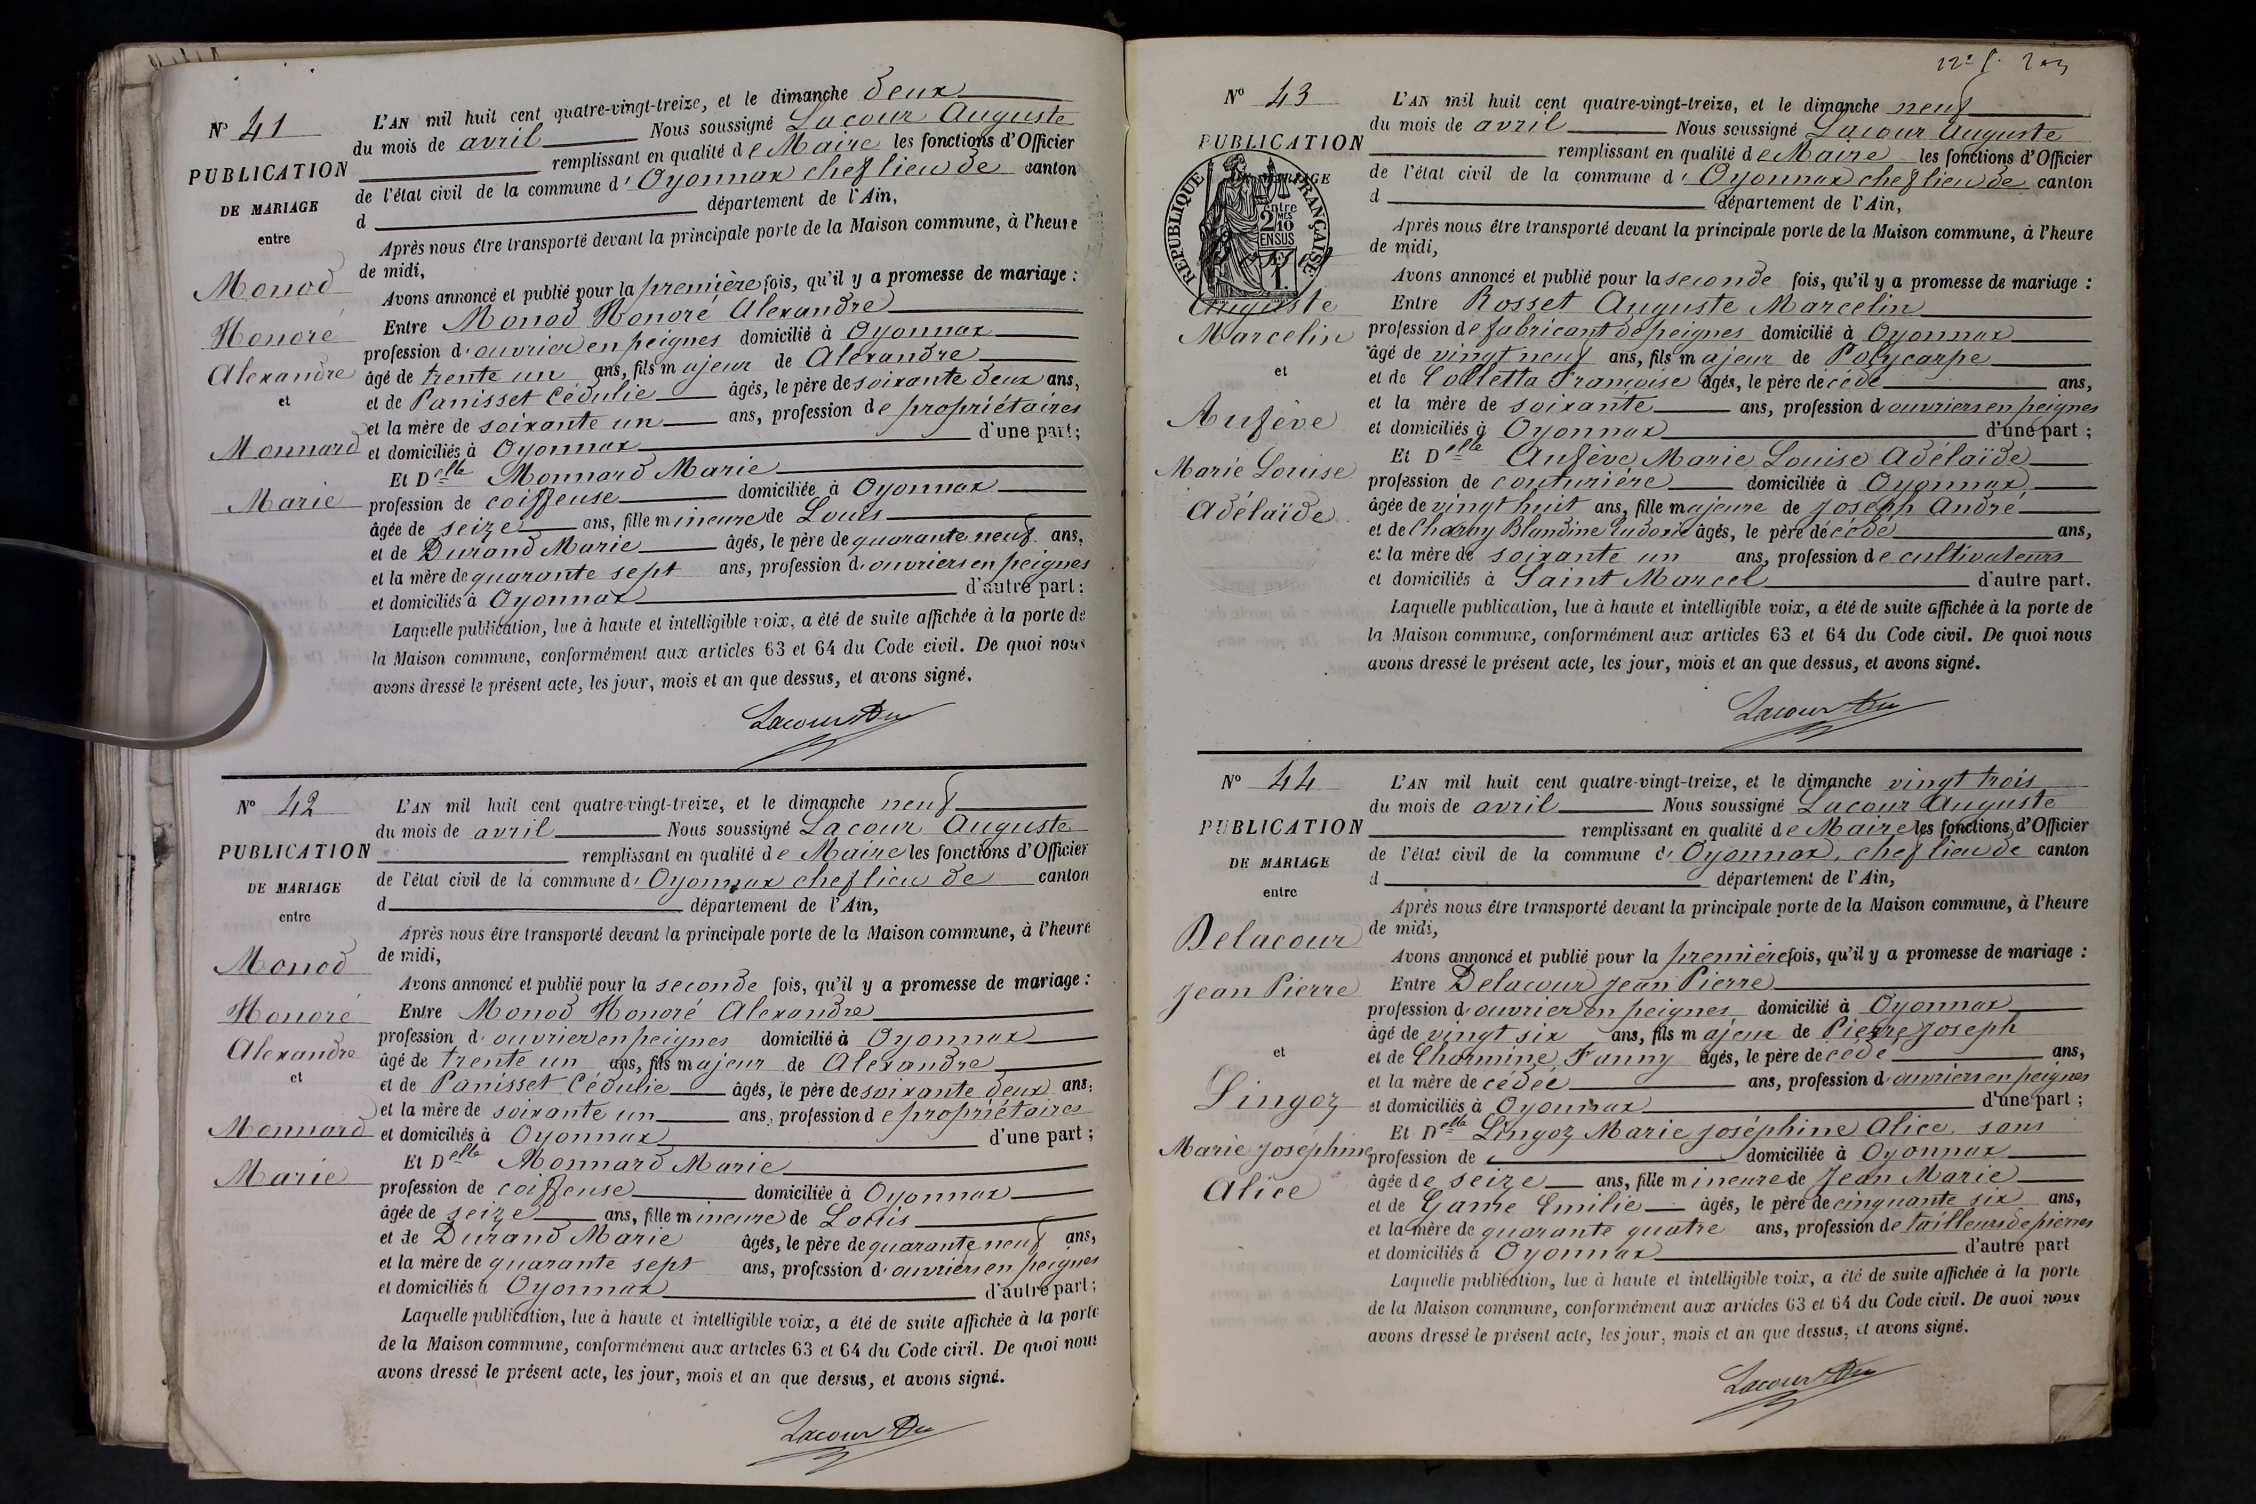 N° 41
PUBLICATION
DE MARIAGE
entre
Monod
Honoré
Alexandre
et
Monnard
Marie
L'AN mil huit cent quatre-vingt-treize, et le dimanche deux
du mois de avril Nous soussigné Lacour Auguste
remplissant en qualité de Maire les fonctions d'Officier
de l'état civil de la commune d' Oyonnax chef lieu de canton
d département de l'Ain,
Après nous être transporté devant la principale porte de la Maison commune, à l'heure
de midi,
Avons annoncé et publié pour la première fois, qu'il y a promesse de mariage :
Entre Monod Honoré Alexandre
profession d'ouvrier en peignes domicilié à Oyonnax
âgé de trente un ans, fils majeur de Alexandre
et de Panisset Cédulie âgés, le père de soixante deux ans,
et la mère de soixante un ans, profession de propriétaires
et domiciliés à Oyonnax d'une part;
Et Delle Monnard Marie
profession de coiffeuse domiciliée à Oyonnax
âgée de seize ans, fille mineure de Louis
et de Durand Marie âgés, le père de quarante neuf ans,
et la mère de quarante sept ans, profession d'ouvriers en peignes
et domiciliés à Oyonnax d'autre part;
Laquelle publication, lue à haute et intelligible voix, a été de suite affichée à la porte de
la Maison commune, conformément aux articles 63 et 64 du Code civil. De quoi nous
avons dressé le présent acte, les jour, mois et an que dessus, et avons signé.
Lacour
N° 42
PUBLICATION
DE MARIAGE
entre
Monod
Honoré
Alexandre
et
Monnard
Marie
L'AN mil huit cent quatre-vingt-treize, et le dimanche neuf
du mois de avril Nous soussigné Lacour Auguste
remplissant en qualité de Maire les fonctions d'Officier
de l'état civil de la commune d' Oyonnax chef lieu de canton
d département de l'Ain,
Après nous être transporté devant la principale porte de la Maison commune, à l'heure
de midi,
Avons annoncé et publié pour la seconde fois, qu'il y a promesse de mariage :
Entre Monod Honoré Alexandre
profession d'ouvrier en peignes domicilié à Oyonnax
âgé de trente un ans, fils majeur de Alexandre
et de Panisset Cédulie âgés, le père de soixante deux ans,
et la mère de soixante un ans, profession de propriétaires
et domiciliés à Oyonnax d'une part;
Et Delle Monnard Marie
profession de coiffeuse domiciliée à Oyonnax
âgée de seize ans, fille mineure de Louis
et de Durand Marie âgés, le père de quarante neuf ans,
et la mère de quarante sept ans, profession d'ouvriers en peignes
et domiciliés à Oyonnax d'autre part;
Laquelle publication, lue à haute et intelligible voix, a été de suite affichée à la porte
de la Maison commune, conformément aux articles 63 et 64 du Code civil. De quoi nous
avons dressé le présent acte, les jour, mois et an que dessus, et avons signé.
Lacour
N° 43
PUBLICATION
MARIAGE
entre
RÉPUBLIQUE FRANÇAISE
2 MES 10
EN SUS
Auguste
Marcelin
et
Aufève
Marie Louise
Adélaïde
L'AN mil huit cent quatre-vingt-treize, et le dimanche neuf
du mois de avril Nous soussigné Lacour Auguste
remplissant en qualité de Maire les fonctions d'Officier
de l'état civil de la commune d' Oyonnax chef lieu de canton
d département de l'Ain,
Après nous être transporté devant la principale porte de la Maison commune, à l'heure
de midi,
Avons annoncé et publié pour la seconde fois, qu'il y a promesse de mariage :
Entre Rosset Auguste Marcelin
profession de fabricant de peignes domicilié à Oyonnax
âgé de vingt neuf ans, fils majeur de Polycarpe
et de Colletta Françoise âgés, le père décédé ans,
et la mère de soixante ans, profession d'ouvriers en peignes
et domiciliés à Oyonnax d'une part ;
Et Delle Aufève Marie Louise Adélaïde
profession de couturière domiciliée à Oyonnax
âgée de vingt huit ans, fille majeure de Joseph André
et de Charny Blandine Ludovie âgés, le père décédé ans,
et la mère de soixante un ans, profession de cultivateurs
et domiciliés à Saint Marcel d'autre part.
Laquelle publication, lue à haute et intelligible voix, a été de suite affichée à la porte de
la Maison commune, conformément aux articles 63 et 64 du Code civil. De quoi nous
avons dressé le présent acte, les jour, mois et an que dessus, et avons signé.
Lacour
N° 44
PUBLICATION
DE MARIAGE
entre
Delacour
Jean Pierre
et
Lingoz
Marie Joséphine
Alice
L'AN mil huit cent quatre-vingt-treize, et le dimanche vingt trois
du mois de avril Nous soussigné Lacour Auguste
remplissant en qualité de Maire les fonctions d'Officier
de l'état civil de la commune d' Oyonnax, chef lieu de canton
d département de l'Ain,
Après nous être transporté devant la principale porte de la Maison commune, à l'heure
de midi,
Avons annoncé et publié pour la première fois, qu'il y a promesse de mariage :
Entre Delacour Jean Pierre
profession d'ouvrier en peignes domicilié à Oyonnax
âgé de vingt six ans, fils majeur de Pierre Joseph
et de Charmine Fanny âgés, le père décédé ans,
et la mère de cédée ans, profession d'ouvriers en peignes
et domiciliés à Oyonnax d'une part ;
Et Delle Lingoz Marie Joséphine Alice, sans
profession de domiciliée à Oyonnax
âgée de seize ans, fille mineure de Jean Marie
et de Game Emilie âgés, le père de cinquante six ans,
et la mère de quarante quatre ans, profession de tailleurs de pierres
et domiciliés à Oyonnax d'autre part
Laquelle publication, lue à haute et intelligible voix, a été de suite affichée à la porte
de la Maison commune, conformément aux articles 63 et 64 du Code civil. De quoi nous
avons dressé le présent acte, les jour, mois et an que dessus, et avons signé.
Lacour